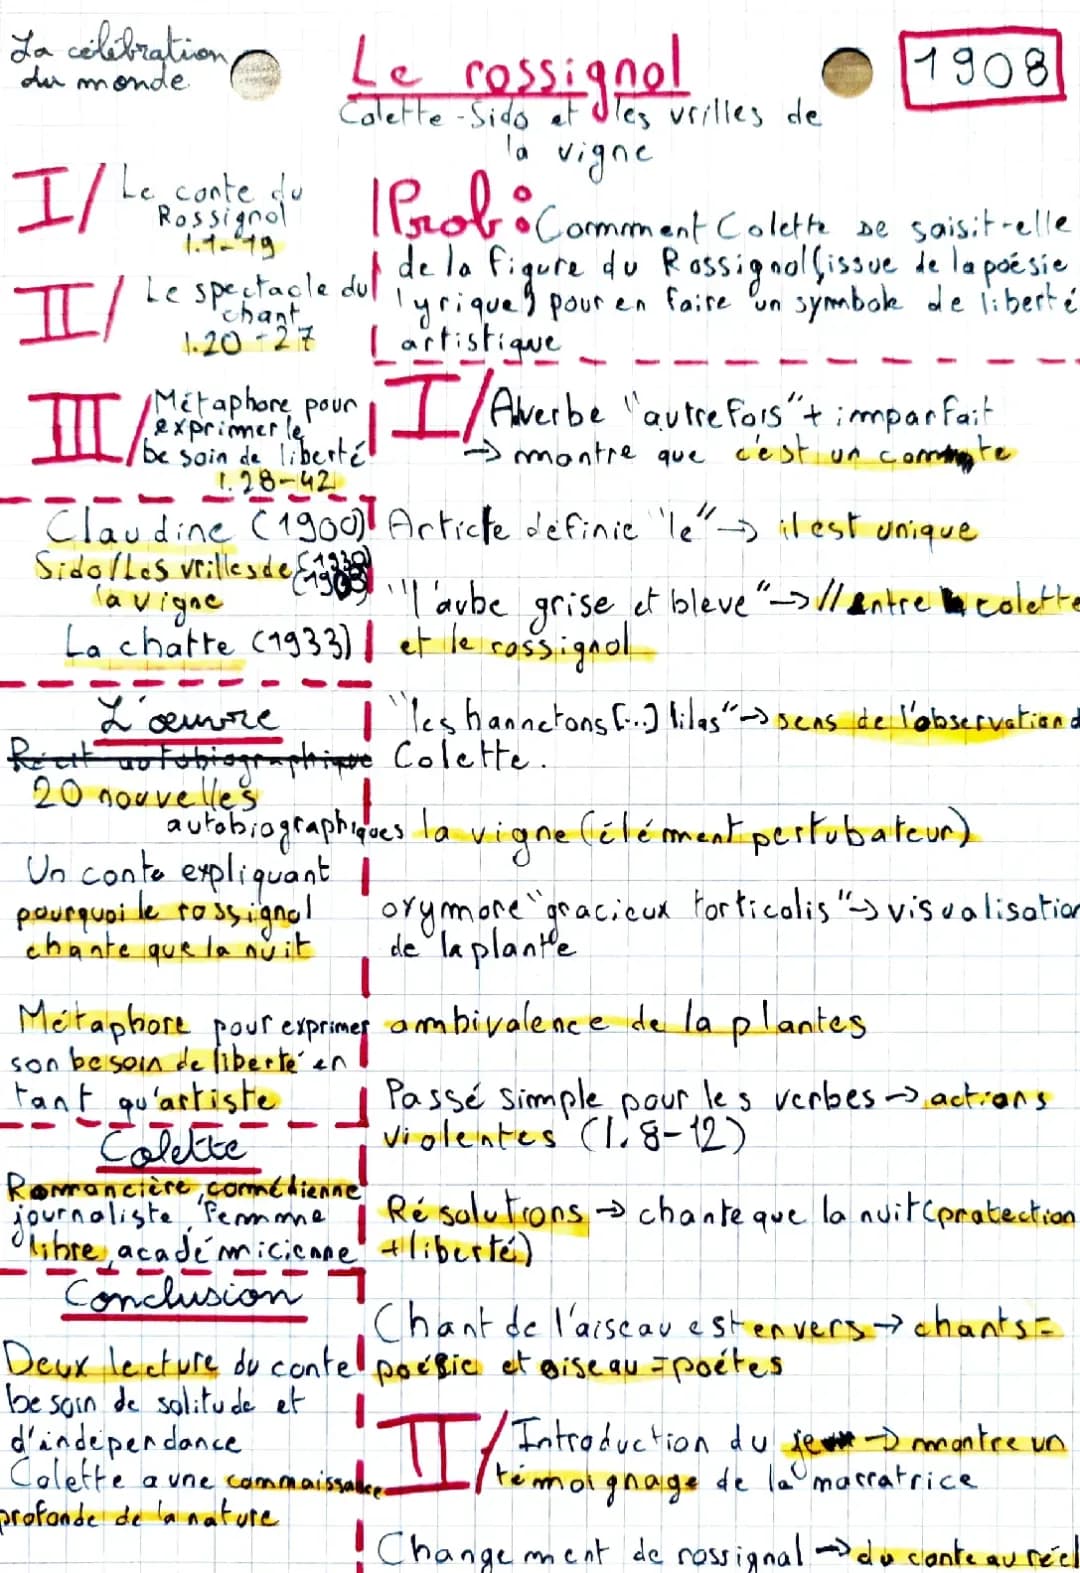 La célébration
du monde
Le rossignol
1908
Colette - Sido et les vrilles de
la vigne
I/ Le conte du
Rossignol
l.1-19
II/ Le spectacle du
chant
l.20-27
III/ Métaphore pour
exprimer le
besoin de liberté
l.28-42
Claudine (1900)
Sido/Les vrilles de (1930)
la vigne
La chatte (1933)
L'œuvre
Récit autobiographique
20 nouvelles
autobiographiques
Un conte expliquant
pourquoi le rossignol
chante que la nuit
Métaphore pour exprimer
son besoin de liberté en
tant qu'artiste
Colette
Romancière, comédienne
journaliste, femme
libre, académicienne
Conclusion
Deux lecture du conte
besoin de solitude et
d'indépendance
Colette a une connaissance
profonde de la nature
Prob : Comment Colette se saisit-elle
de la figure du Rossignol (issue de la poésie
lyrique) pour en faire un symbole de liberté
artistique
I/ Adverbe "autrefois" + imparfait
→ montre que c'est un conte
Article définie "le" → il est unique
"l'aube grise et bleue" → // entre colette
et le rossignol
"les hannetons [...] lilas" → sens de l'observation d
Colette.
la vigne (élément pertubateur)
oxymore "gracieux torticolis" → visualisation
de la plante
ambivalence de la plantes
Passé simple pour les verbes → actions
violentes (l. 8-12)
Résolutions → chante que la nuit (protection
+ liberté)
Chant de l'oiseau est en vers → chants =
poésie et oiseau = poètes
II/ Introduction du je → montre un
témoignage de la narratrice
Changement de rossignol → du conte au réel